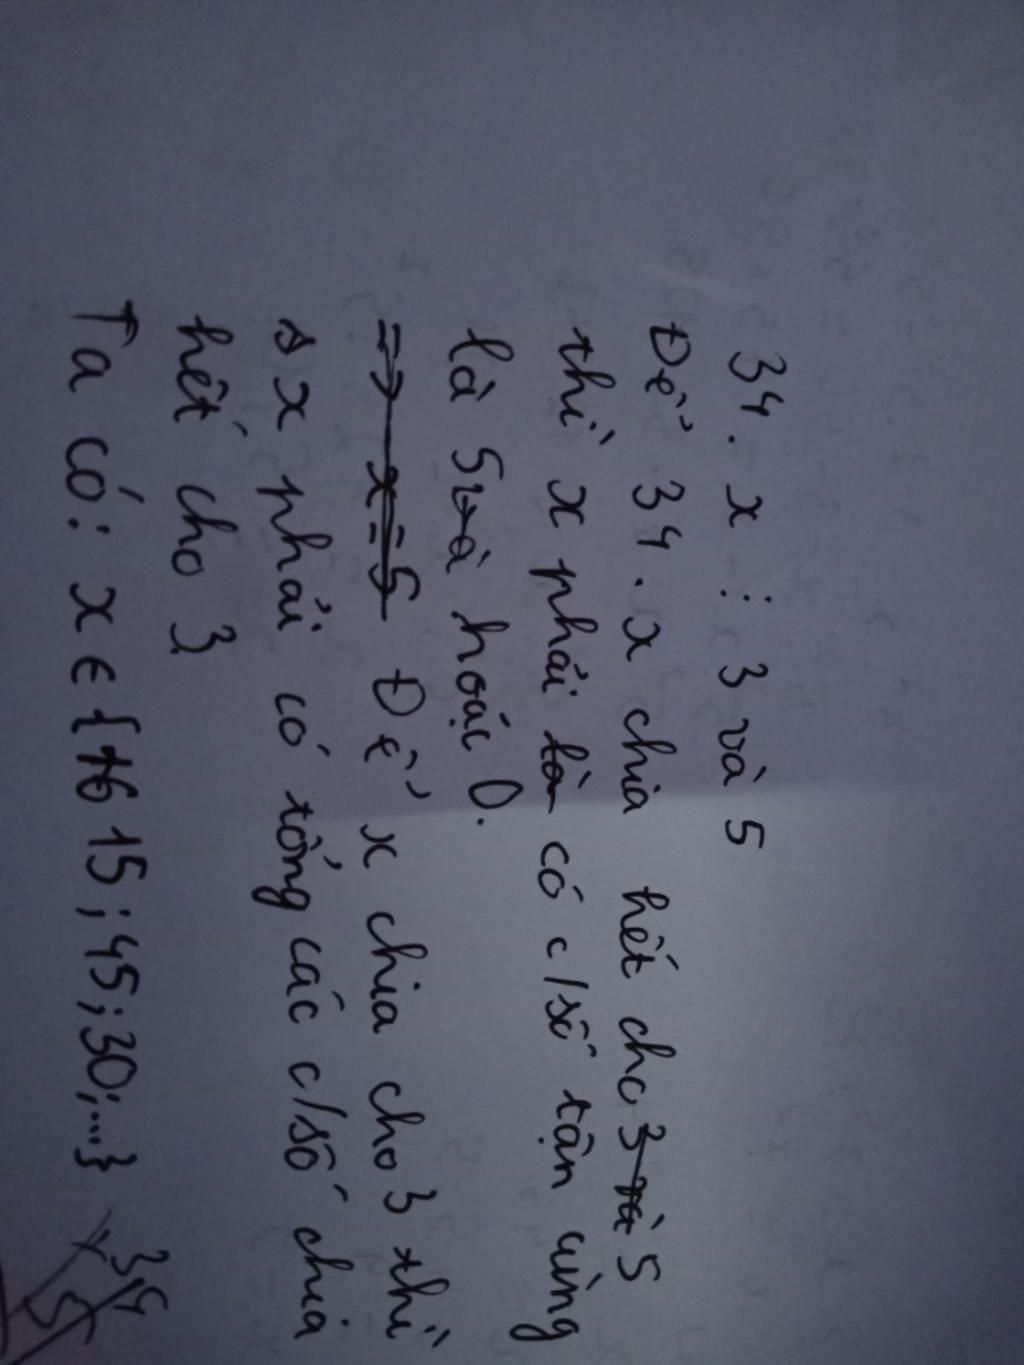 34. x ⋮ 3 và 5
Để 34. x chia hết cho 3 và 5
thì x phải là có c/số tận cùng
là 5 và hoặc 0.
=> x = 5 Để x chia cho 3 thì
x phải có tổng các c/số chia
hết cho 3
Ta có: x ∈ {16 15; 45; 30; ...}
34
x 5